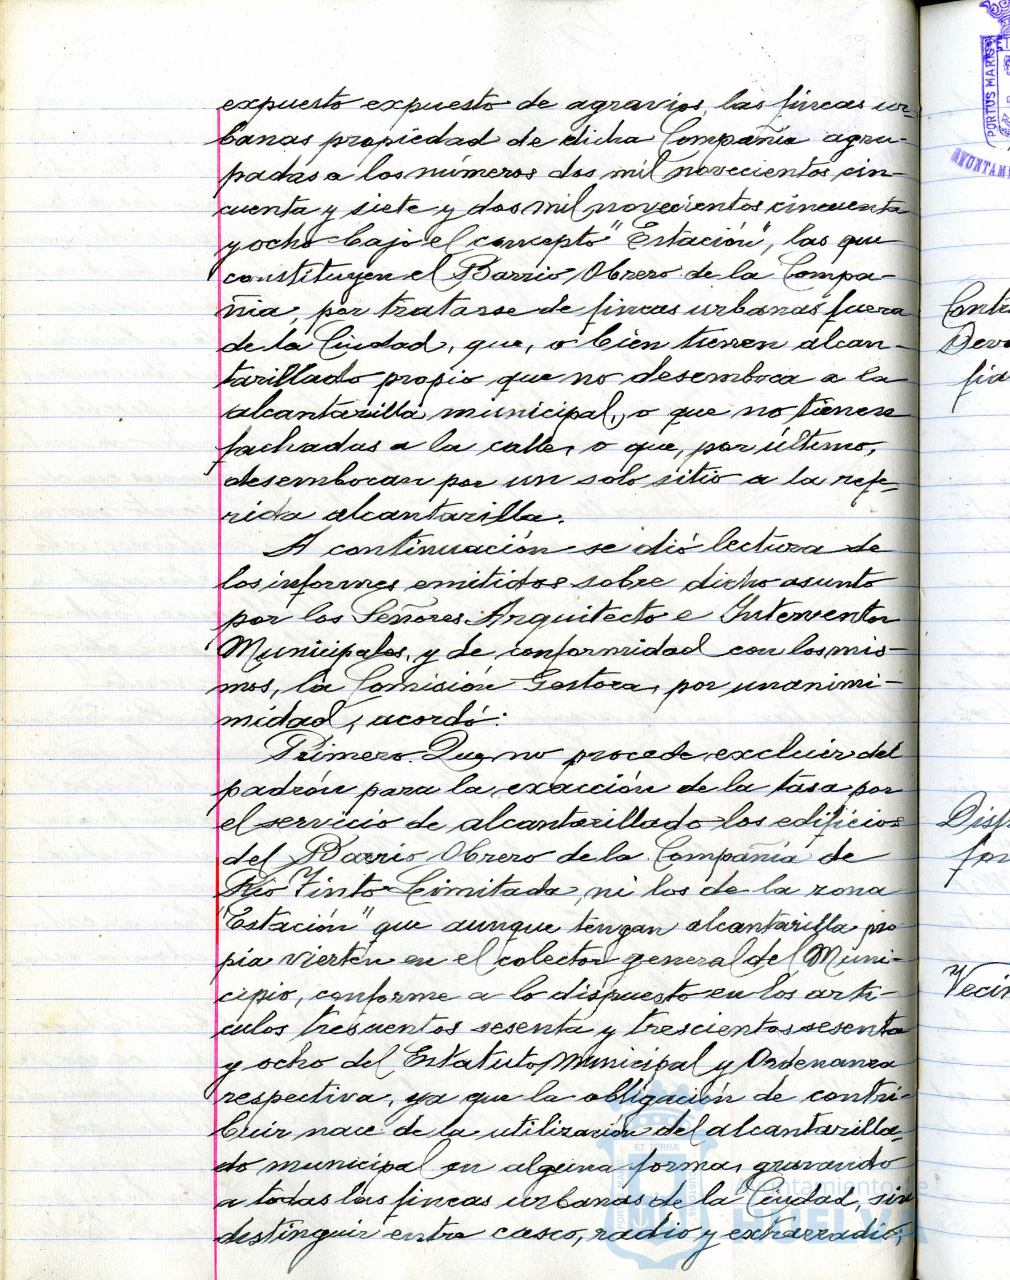 expuesto expuesto de agravios, las fincas ur-
banas propiedad de dicha Compañía agru-
padas a los números dos mil novecientos cin-
cuenta y siete y dos mil novecientos cincuenta
y ocho bajo el concepto "Estación", las que
constituyen el Barrio Obrero de la Compa-
ñía, por tratarse de fincas urbanas fuera
de la Ciudad, que, o bien tienen alcan-
tarillado propio que no desemboca a la
alcantarilla municipal, o que no tienen
fachadas a la calle, o que, por último,
desembocan por un solo sitio a la refe-
rida alcantarilla.
A continuación se dió lectura de
los informes emitidos sobre dicho asunto
por los Señores Arquitecto e Interventor
Municipales, y de conformidad con los mis-
mos, la Comisión Gestora, por unanimi-
midad, acordó:
Primero. Que no procede excluir del
padrón para la exacción de la tasa por
el servicio de alcantarillado los edificios
del Barrio Obrero de la Compañía de
Río Tinto Limitada, ni los de la zona
"Estación" que aunque tengan alcantarilla pro
pia vierten en el colector general del Muni-
cipio, conforme a lo dispuesto en los artí-
culos trescuentos sesenta y trescientos sesenta
y ocho del Estatuto Municipal y Ordenanza
respectiva, ya que la obligación de contri-
buir nace de la utilización del alcantarilla-
do municipal en alguna forma, gravando
a todas las fincas urbanas de la Ciudad, sin
destinguir entre casco, radio y extrarradio,
PORTUS MARIS
AYUNTAM
Contr
Devo
fia
Dist
for
Vecin
Ayuntamiento de
HUELVA